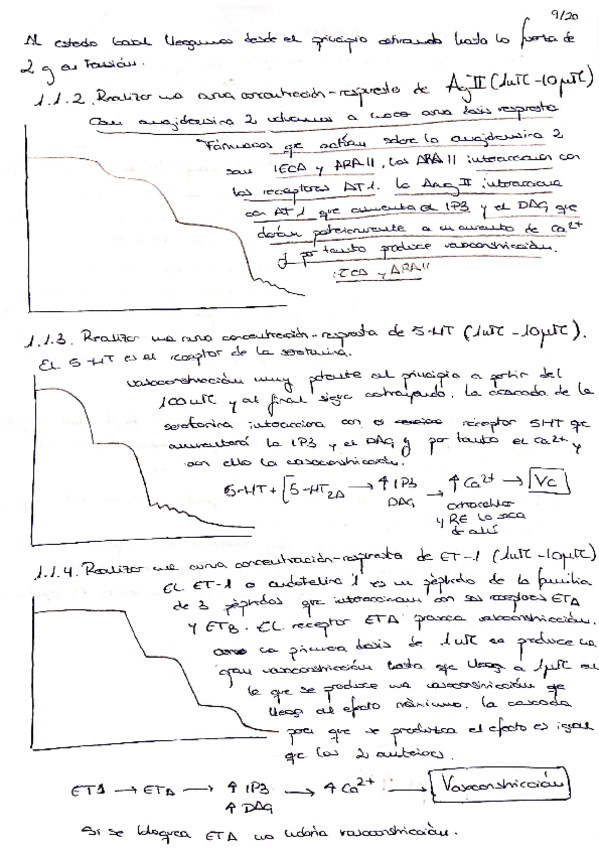 9/20
Al estado basal llegamos desde el principio estirando hasta la fuerza de
2 g en tensión.
1.1.2. Realizar una curva concentración-respuesta de Ag-II (1nM-10µM)
Con angiotensina 2 volvemos a hacer una dosis respuesta
Fármacos que actúan sobre la angiotensina 2
son IECA y ARA II. Los ARA II interaccionan con
los receptores AT1. La Ang II interacciona
con AT1 que aumenta el IP3 y el DAG que
darán posteriormente a un aumento de Ca2+
y por tanto produce vasoconstricción.
IECA y ARA II
1.1.3. Realizar una curva concentración-respuesta de 5-HT (1nM-10µM).
El 5-HT es el receptor de la serotonina.
vasoconstricción muy potente al principio a partir del
100nM y al final sigue contrayendo. La cascada de la
serotonina interacciona con el receptor 5HT que
aumentará la IP3 y el DAG y por tanto el Ca2+ y
con ello la vasoconstricción.
5-HT + [5-HT2A → ↑ IP3 DAG → ↑ Ca2+ → VC
extracelular
y RE lo saca
de allí
1.1.4. Realizar una curva concentración-respuesta de ET-1 (1nM-10µM)
El ET-1 o endotelina 1 es un péptido de la familia
de 3 péptidos que interaccionan con sus receptores ETA
y ETB. El receptor ETA provoca vasoconstricción.
La primera dosis de 1nM se produce una
gran vasoconstricción hasta que llega a 1µM en
la que se produce una vasoconstricción que
llega al efecto máximo. La cascada
para que se produzca el efecto es igual
que las 2 anteriores.
ET1 → ETA → ↑ IP3 → ↑ Ca2+ → Vasoconstricción
↑ DAG
Si se bloquea ETA no habría vasoconstricción.